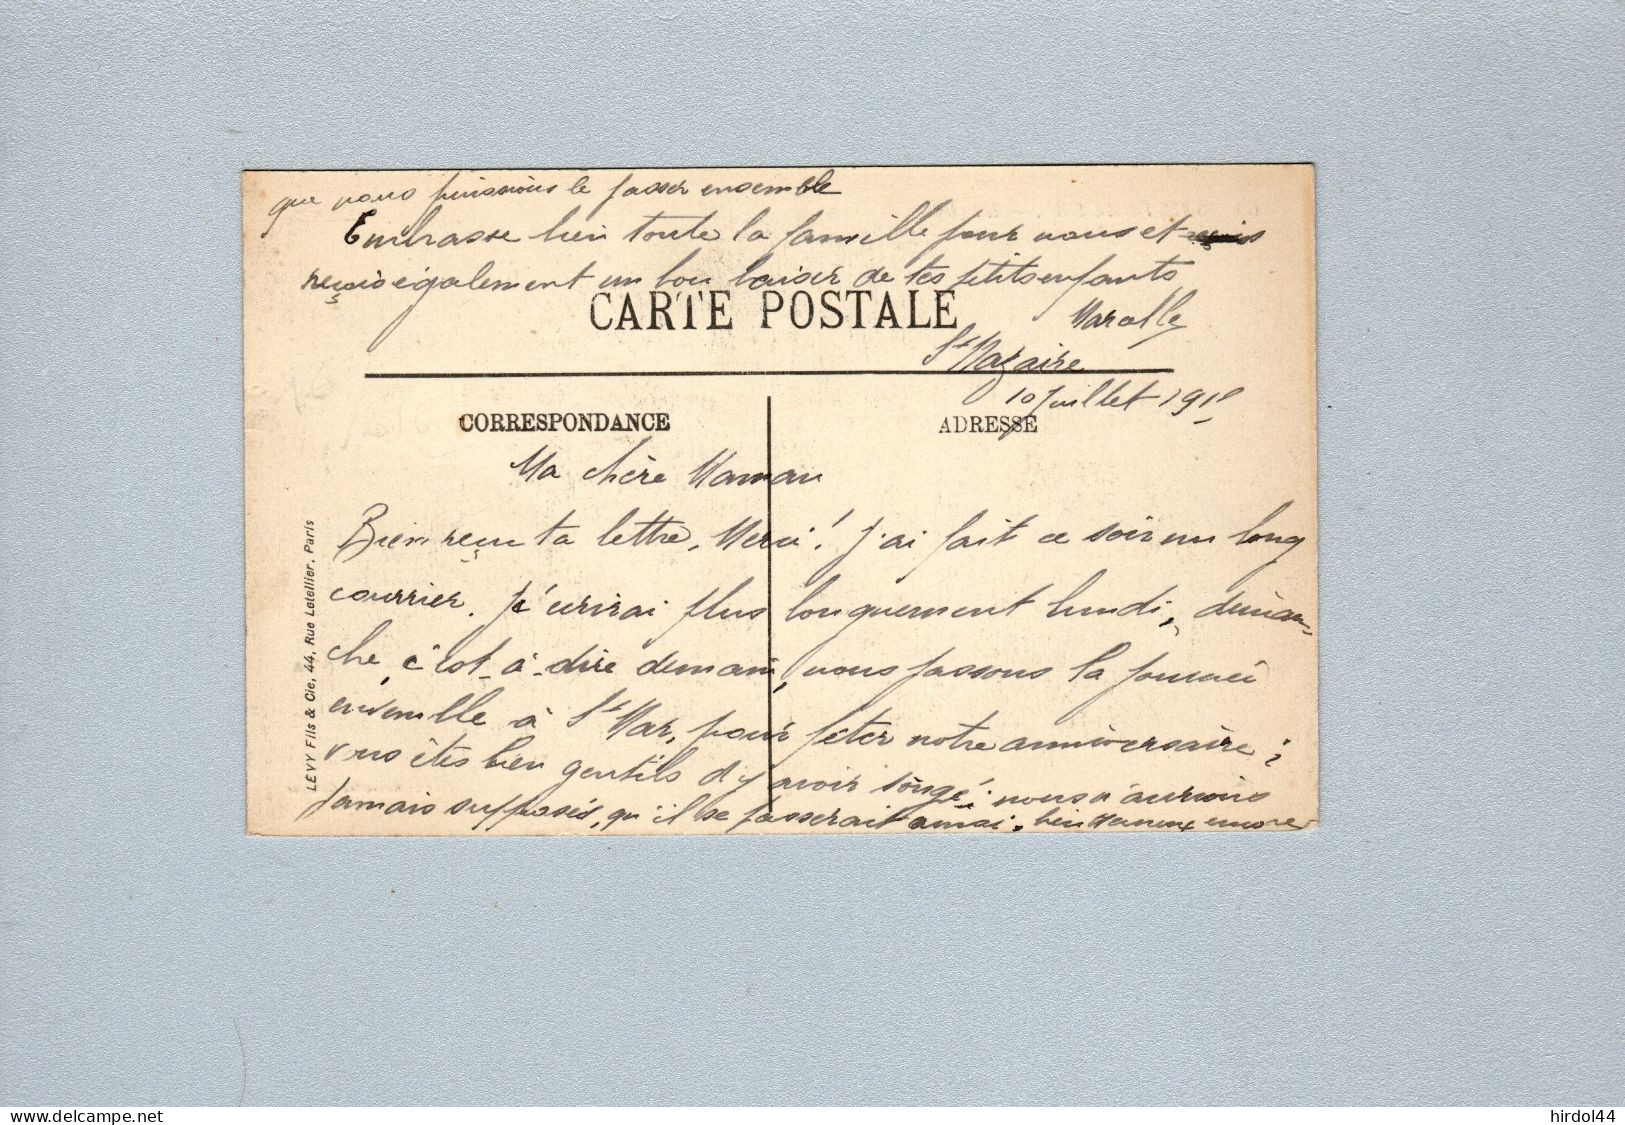 que nous puissions le passer ensemble
Embrasse bien toute la famille pour nous et
reçois également un bon baiser de tes petits enfants
CARTE POSTALE
St Nazaire
10 Juillet 191
CORRESPONDANCE
ADRESSE
Ma chère Maman
Bien reçu ta lettre, Merci! J'ai fait ce soir un long
courrier. Je t'écrirai plus longuement lundi, diman-
che, c'est-à-dire demain, nous passons la journée
ensemble à St Nar, pour fêter notre anniversaire;
vous êtes bien gentils d'y avoir songé; nous n'aurions
jamais supposés, qu'il se passerait ainsi. bien heureux encore
LÉVY Fils & Cie, 44, Rue Letellier, Paris
www.delcampe.net
hirdol44